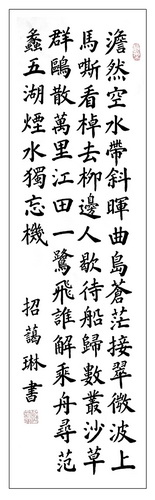 澹然空水帶斜暉曲島蒼茫接翠微波上
馬嘶看棹去柳邊人歇待船歸數叢沙草
群鷗散萬里江田一鷺飛誰解乘舟尋范
蠡五湖煙水獨忘機
招藹琳書